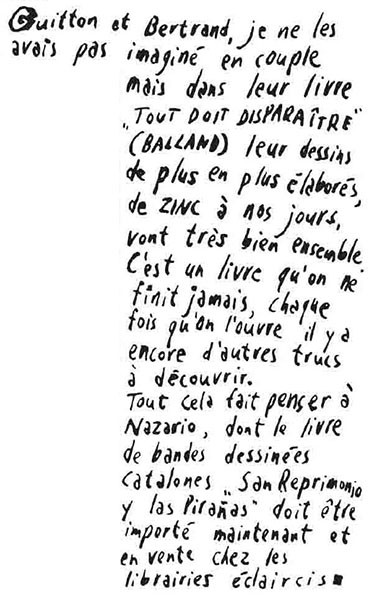 Guitton et Bertrand, je ne les
avais pas imaginé en couple
mais dans leur livre
„TOUT DOIT DISPARAÎTRE"
(BALLAND) leur dessins
de plus en plus élaborés,
de ZINC à nos jours,
vont très bien ensemble
C'est un livre qu'on ne
finit jamais, chaque
fois qu'on l'ouvre il y a
encore d'autres trucs
à découvrir.
Tout cela fait penser à
Nazario, dont le livre
de bandes dessinées
catalones „San Reprimonjo
y las Pirañas" doit être
importé maintenant et
en vente chez les
librairies éclaircis